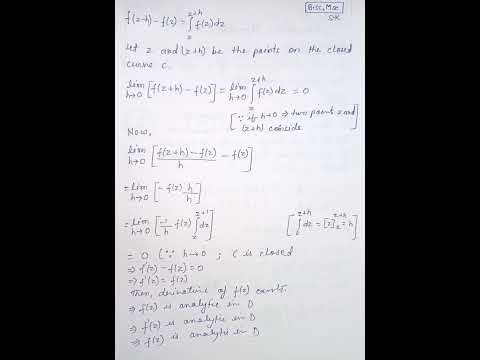 B.Sc, M.Sc
S.K
f(z-h) - f(z) = ∫_z^{z+h} f(z) dz
Let z and (z+h) be the points on the closed
curve C.
lim_{h→0} [f(z+h) - f(z)] = lim_{h→0} ∫_z^{z+h} f(z) dz = 0
[∵ if h→0 ⇒ two point z and
(z+h) coincide]
Now,
lim_{h→0} [(f(z+h) - f(z))/h - f(z)]
= lim_{h→0} [-f(z) h/h]
= lim_{h→0} [-1/h f(z) ∫_z^{z+1} dz] [∫_z^{z+h} dz = [z]_z^{z+h} = h]
= 0 (∵ h→0 ; C is closed
⇒ f'(z) - f(z) = 0
⇒ f'(z) = f(z)
Then, derivative of f(z) exists.
⇒ f(z) is analytic in D
⇒ f'(z) is analytic in D
⇒ f(z) is analytic in D